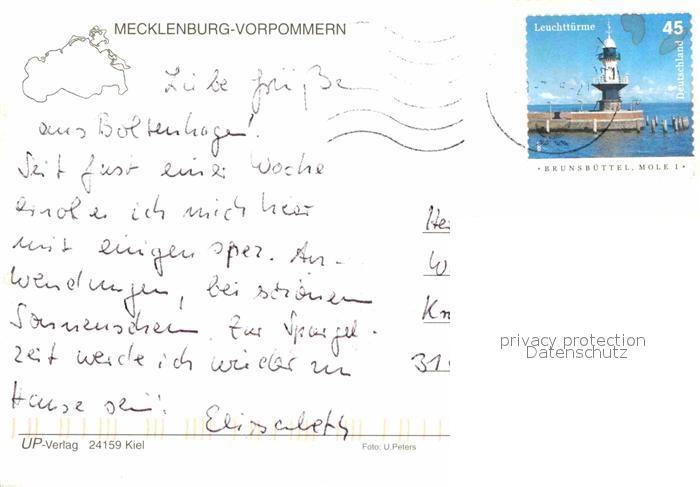 MECKLENBURG-VORPOMMERN
Leuchttürme 45
Deutschland
BRUNSBÜTTEL, MOLE 1
Liebe Grüße
aus Boltenhagen!
Seit fast einer Woche
erhole ich mich hier
mit einigen spez. An-
wendungen, bei schönem
Sonnenschein. Zur Spargel-
zeit werde ich wieder zu
Hause sein!
Elisabeth
He
W
Kn
31
privacy protection
Datenschutz
UP-Verlag 24159 Kiel
Foto: U.Peters